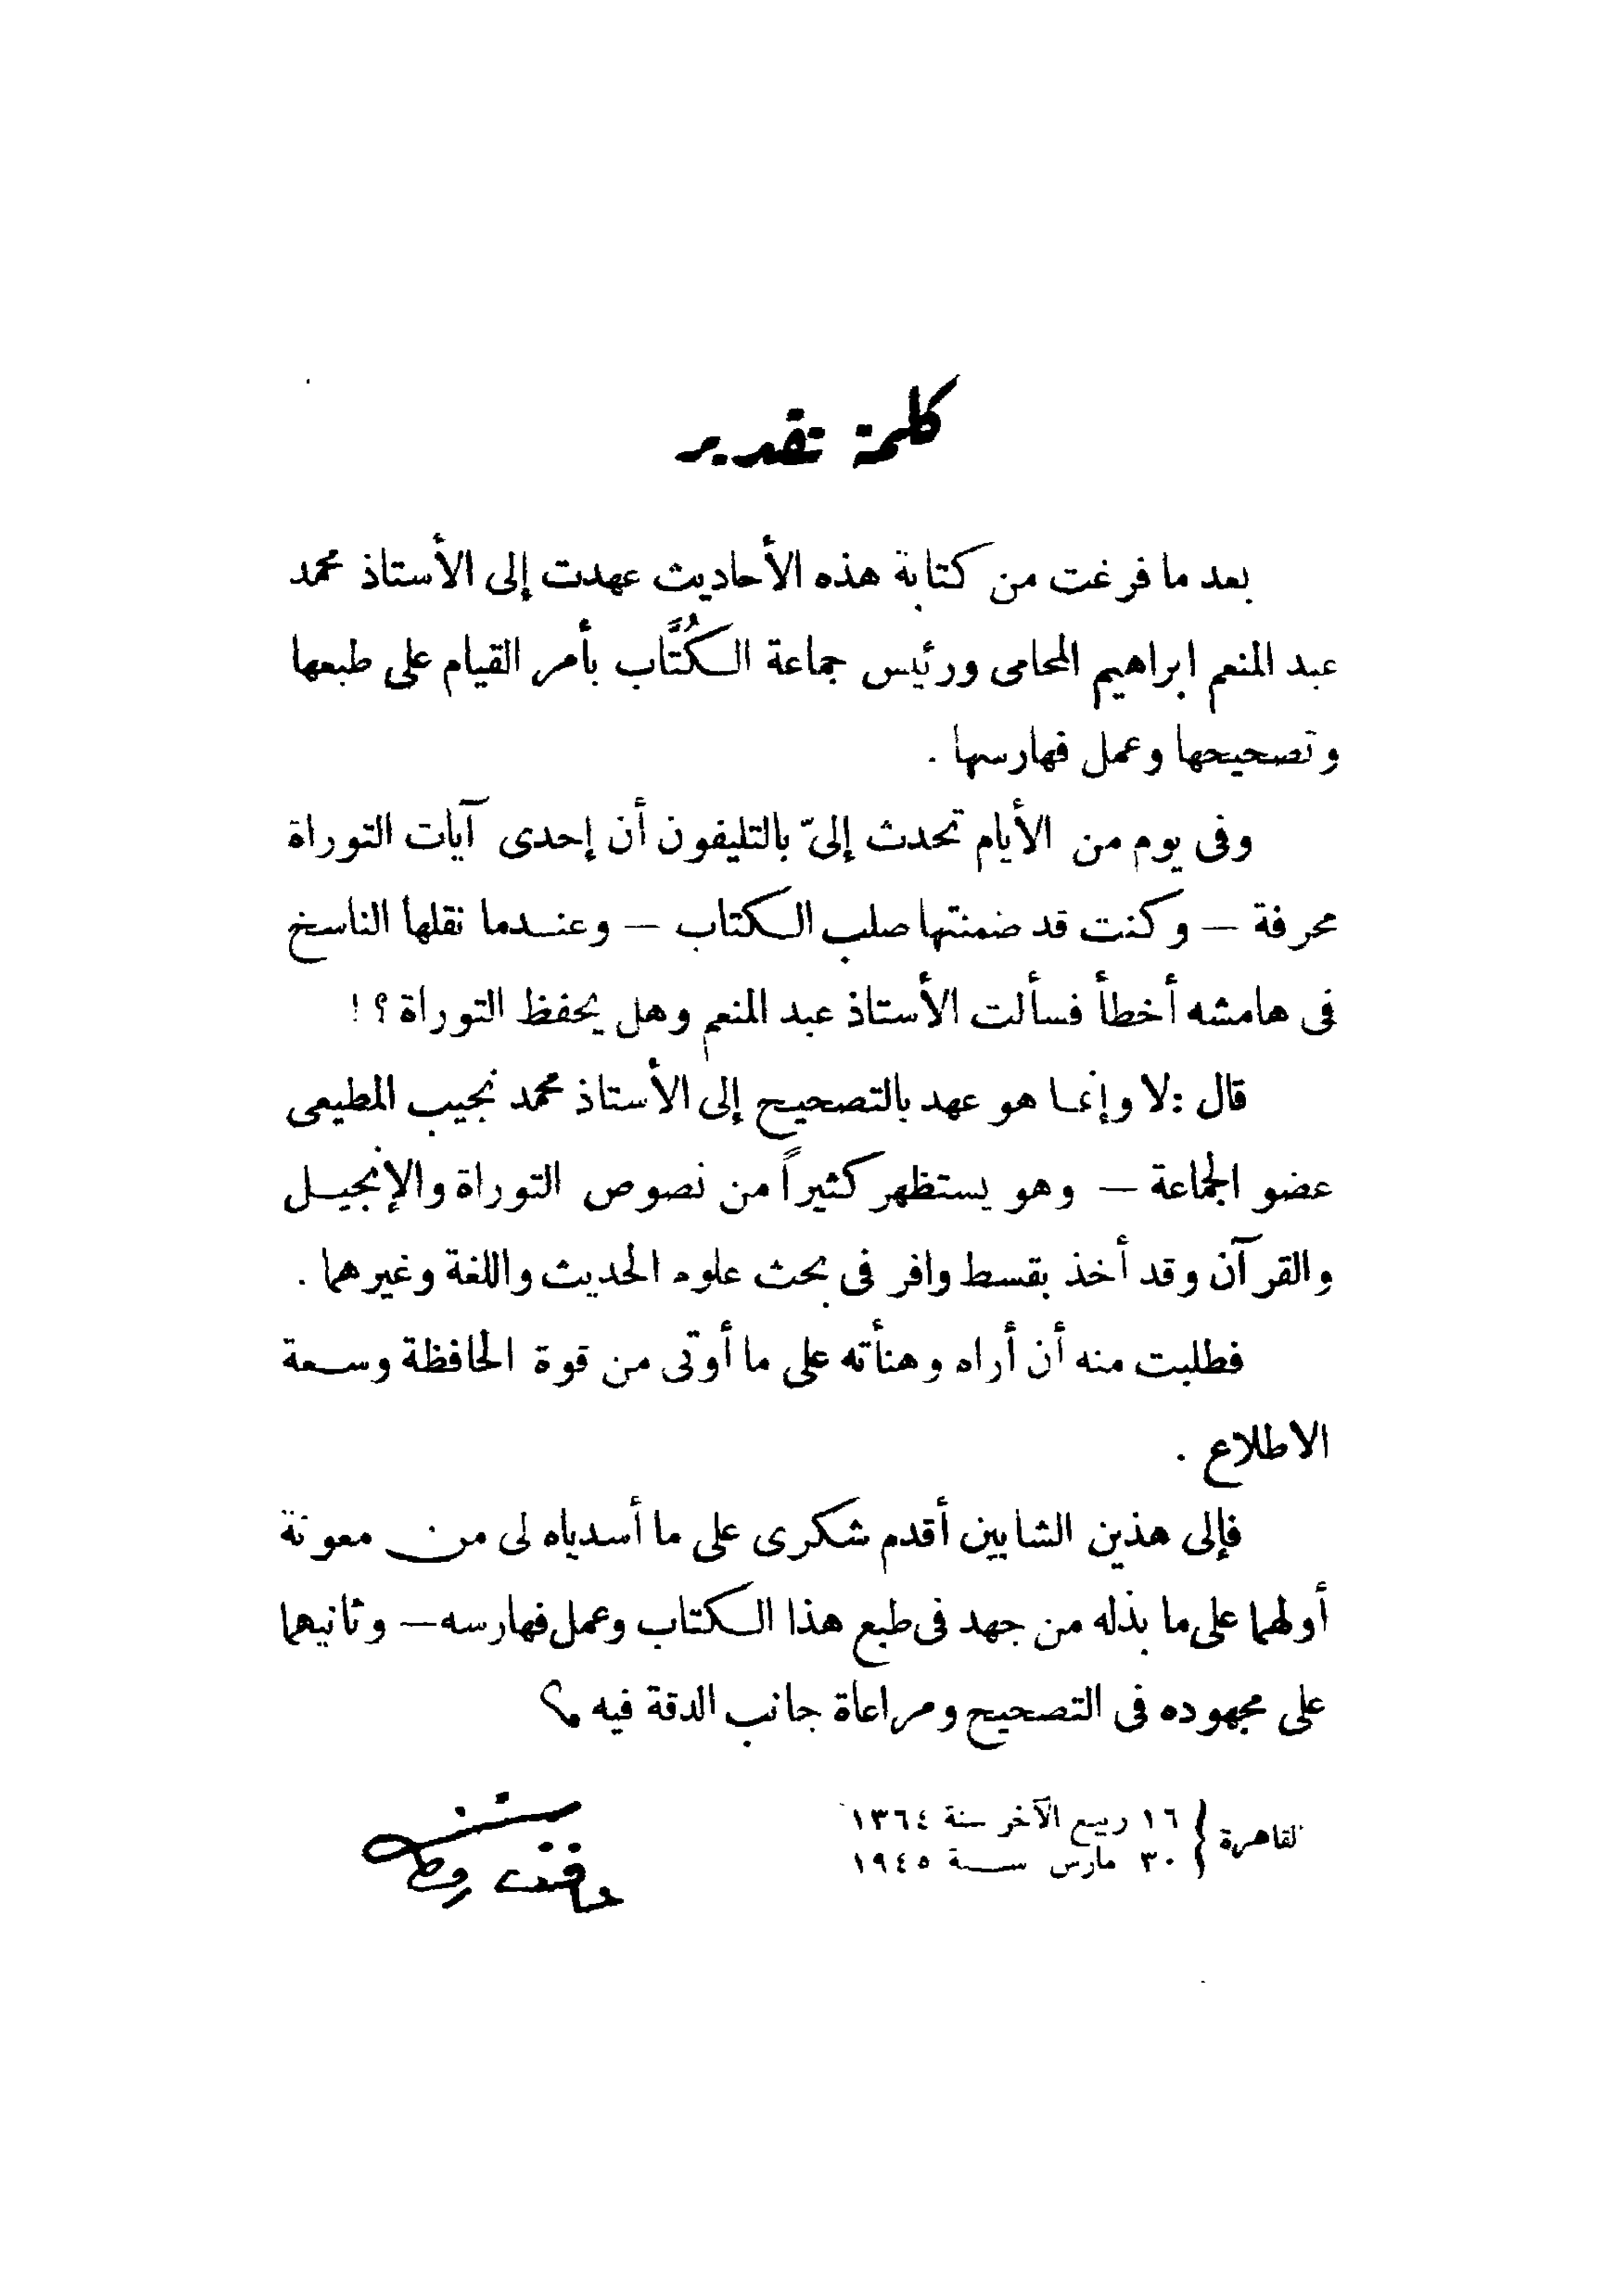 كلمة تقدير
بعد ما فرغت من كتابة هذه الأحاديث عهدت إلى الأستاذ محمد
عبد المنعم ابراهيم المحامى ورئيس جماعة الكُتَّاب بأمر القيام على طبعها
وتصحيحها وعمل فهارسها .
وفى يوم من الأيام تحدث إلىّ بالتليفون أن إحدى آيات التوراة
محرفة — وكنت قد ضمنتها صلب الكتاب — وعندما نقلها الناسخ
فى هامشه أخطأ فسألت الأستاذ عبد المنعم وهل يحفظ التوراة ؟ !
قال : لا وإنما هو عهد بالتصحيح إلى الأستاذ محمد نجيب المطيعى
عضو الجماعة — وهو يستظهر كثيراً من نصوص التوراة والإنجيل
والقرآن وقد أخذ بقسط وافر فى بحث علوم الحديث واللغة وغيرهما .
فطلبت منه أن أراه وهنأته على ما أوتى من قوة الحافظة وسعة
الاطلاع .
فإلى هذين الشابين أقدم شكرى على ما أسدياه لى من معونة
أولهما على ما بذله من جهد فى طبع هذا الكتاب وعمل فهارسه — وثانيهما
على مجهوده فى التصحيح ومراعاة جانب الدقة فيه
القاهرة { ١٦ ربيع الآخر سنة ١٣٦٤
٣٠ مارس سنة ١٩٤٥